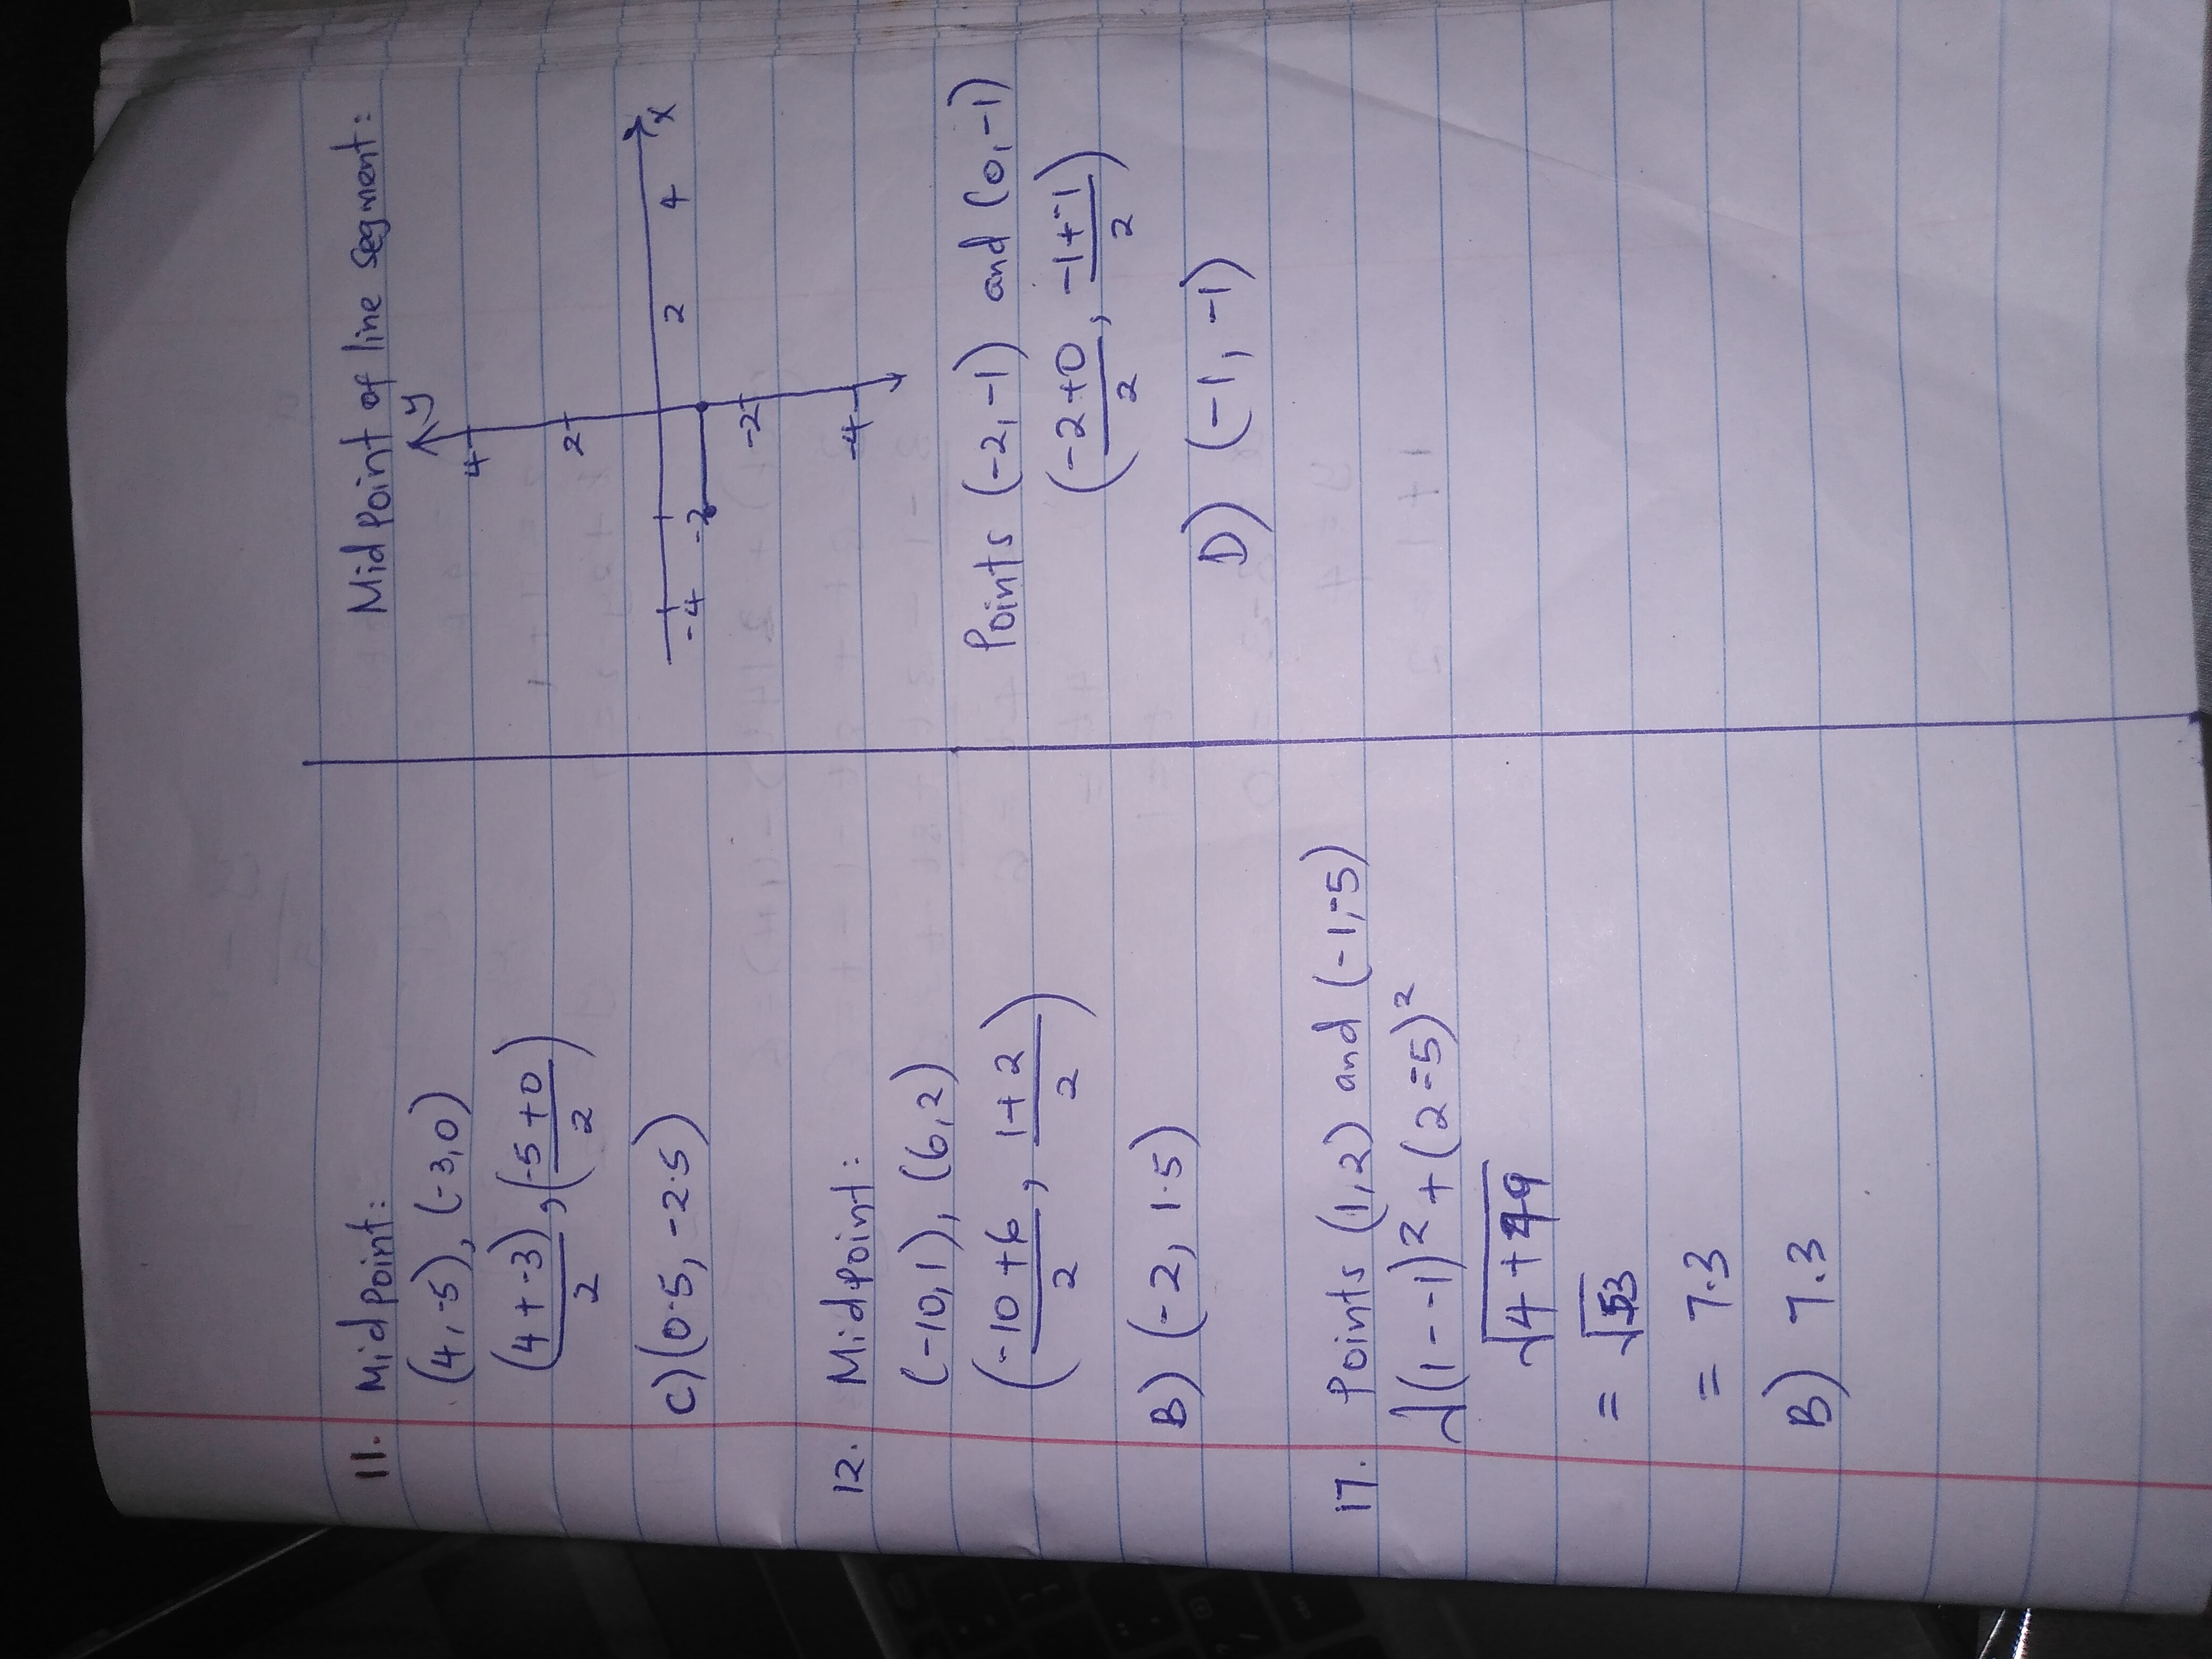 11. Midpoint:
(4,-5), (-3,0)
(4+-3)/2, (-5+0)/2)
C) (0.5, -2.5)
12. Midpoint:
(-10,1), (6,2)
(-10+6/2, 1+2/2)
B) (-2, 1.5)
17. Points (1,2) and (-1,-5)
√(1--1)² + (2--5)²
√4+49
= √53
= 7.3
B) 7.3
Mid Point of line segment:
y
4
2
-4 -2 2 4 x
-2
-4
Points (-2,-1) and (0,-1)
(-2+0/2, -1+-1/2)
D) (-1,-1)